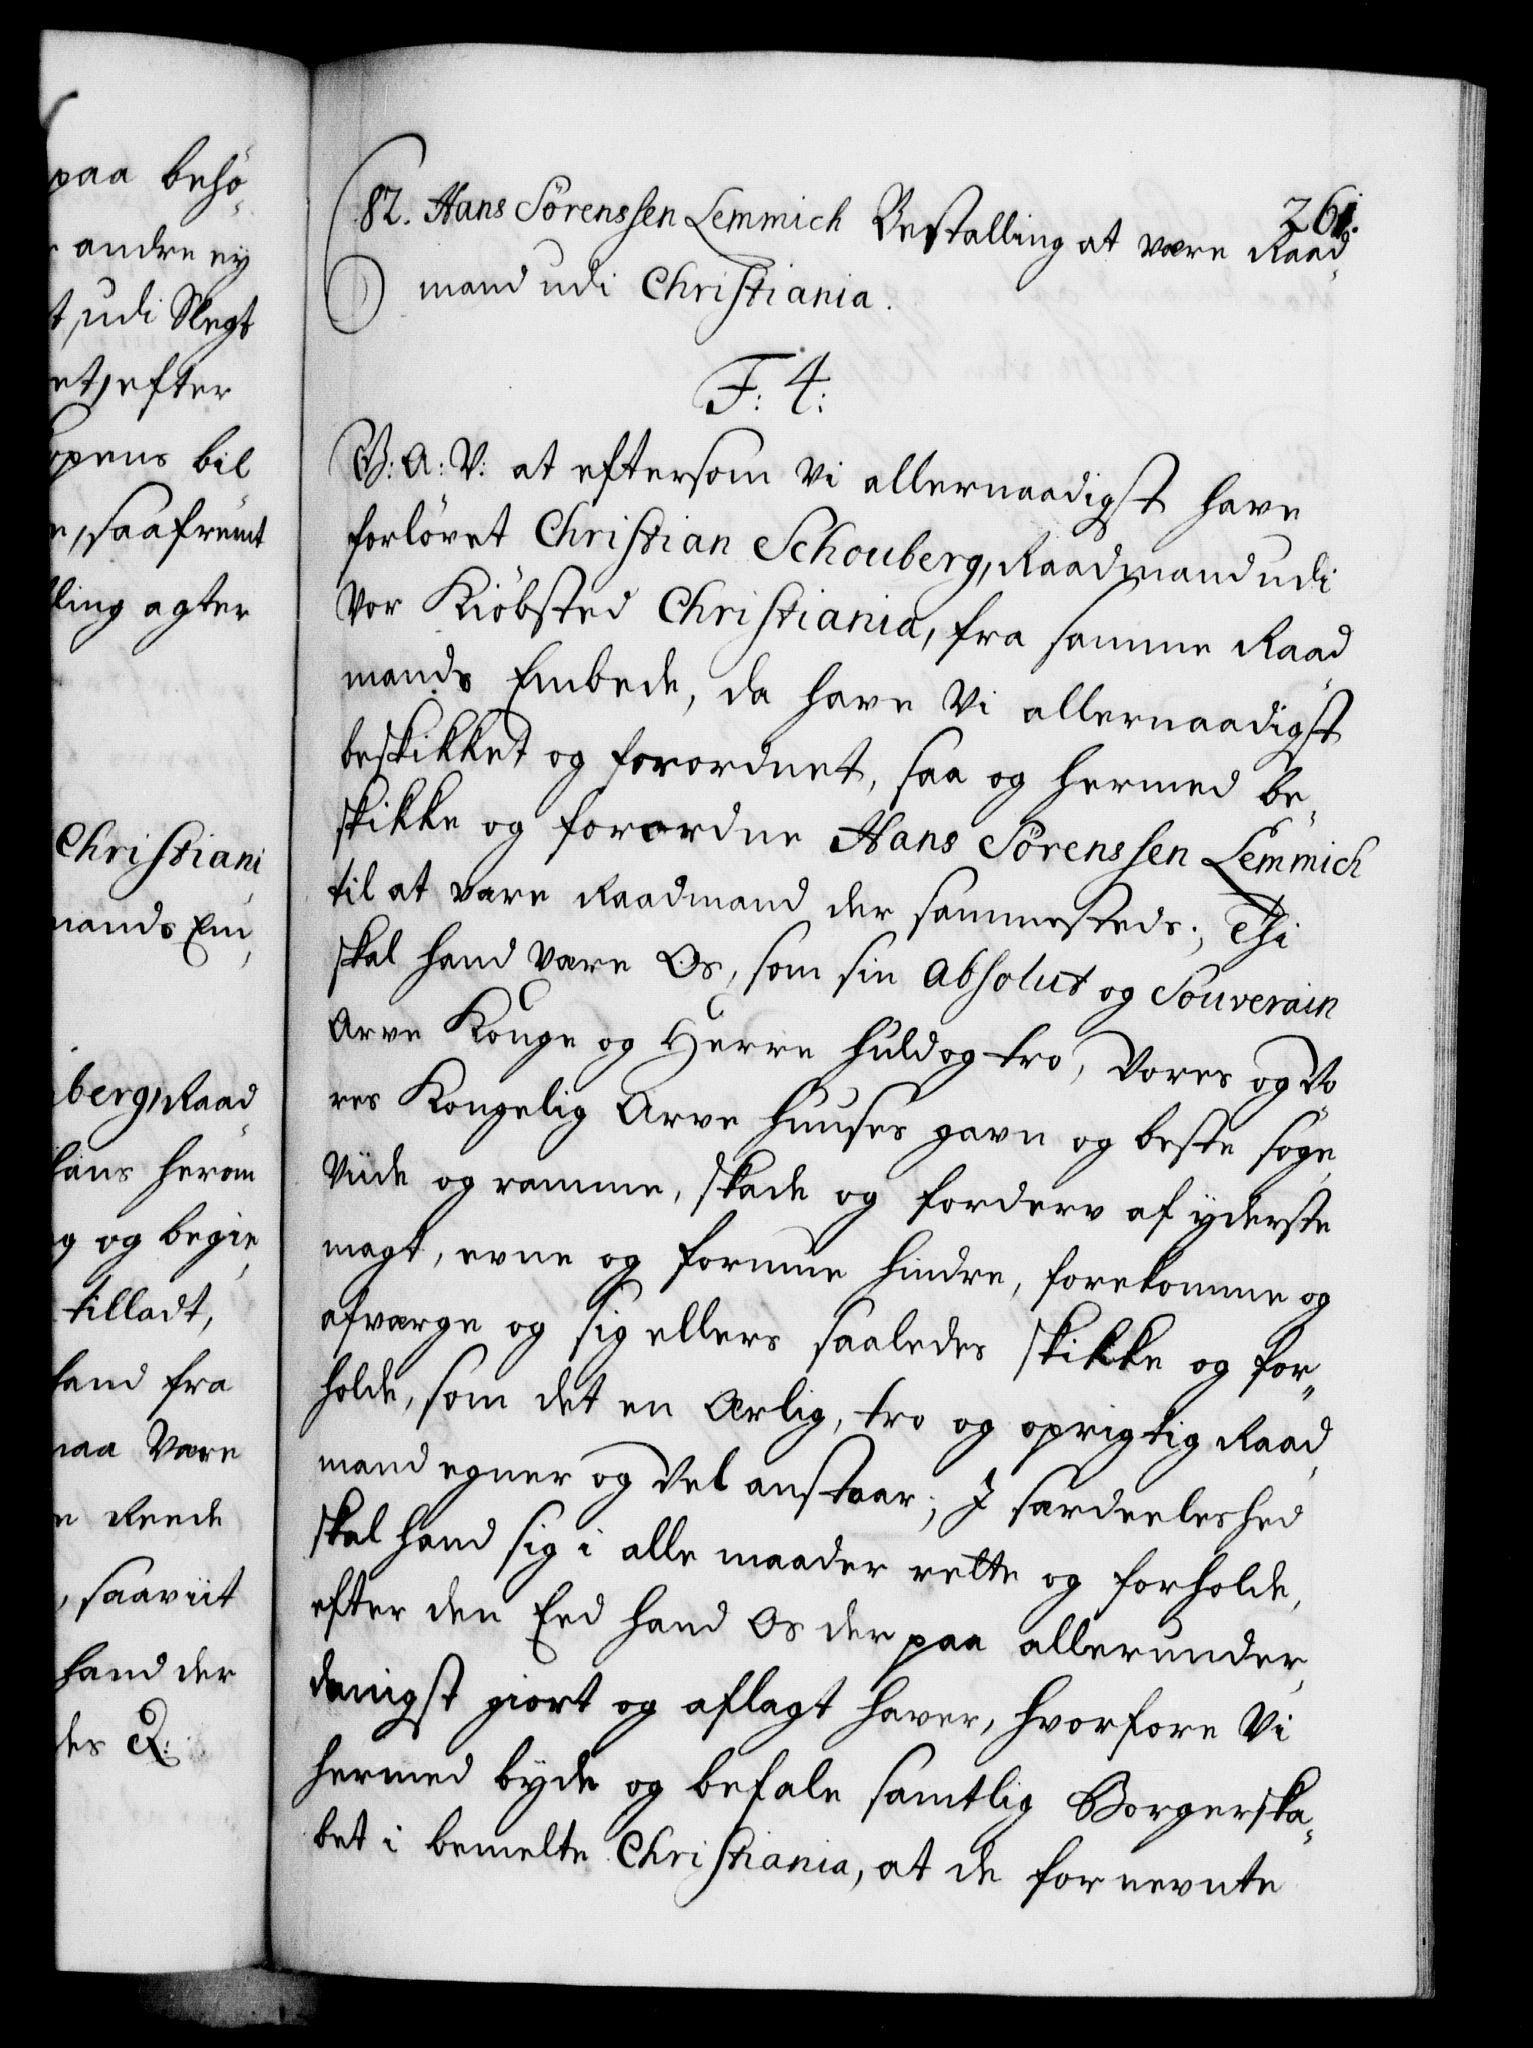 paa behø-
andre ey
t, udi Slegt
et, efter
opens bil
e, saafremt
ling agter
Christiani
mands Em-
berg, Raad-
hans herom
g og begie-
tilladt,
hand fra
maa være
Reede
, saaviit
hand der
des &:
261.
82. Hans Sörenssen Lemmich Bestalling at være Raad-
mand udi Christiania.
F: 4:
G: A: V: at eftersom Vi allernaadigst have
forlövet Christian Schouberg, Raadmand udi
Vor Kiöbsted Christiania, fra samme Raad-
mands Embede, da have Vi allernaadigst
beskikket og forordnet, saa og hermed be-
skikke og forordne Hans Sörenssen Lemmich
til at være Raadmand der sammesteds; Thi
skal hand være Os, som sin absolut og Souverain
Arve Konge og Herre huld og tro, Vores og Vo-
res Kongelig Arve Huuses gavn og beste søge,
Viide og ramme, skade og forderv af yderste
magt, evne og formue hindre, forekomme og
afværge og sig ellers saaledes skikke og for-
holde, som det en Ærlig, tro og oprigtig Raad-
mand egner og vel anstaar; I særdeeleshed
skal hand sig i alle maader rette og forholde,
efter den Eed hand Os der paa allerunder-
danigst giort og aflagt haver, hvorfore Vi
hermed byde og befale samtlig Borgerska-
bet i bemelte Christiania, at de for nevnte